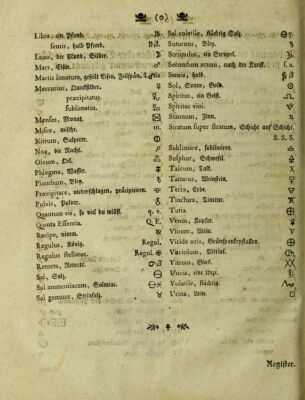 (o)
Libra, ein Pfund.
semis, halb Pfund.
Luna, der Mond, Silber.
Mars, Eisen.
Martis limatura, gefeilt Eisen, Feilspän.
Mercurius, Quecksilber.
præcipitatus.
sublimatus.
Menses, Monat.
Misce, mische. m.
Nitrum, Salpeter.
Nox, die Nacht.
Oleum, Oel.
Phlogma, Wasser.
Plumbum, Bley.
Præcipitare, niederschlagen, präcipitiren.
Pulvis, Pulver.
Quantum vis, so viel du willst. q. v.
Quinta Essentia. Q. E.
Recipe, nimm.
Regulus, König. Regul.
Regulus stellatus. Regul.
Retorta, Retorte.
Sal, Salz.
Sal ammoniacum, Salmiac.
Sal gemmæ, Steinsalz.
Sal volatile, flüchtig Salz.
Saturnus, Bley.
Scrupulus, ein Scrupel.
Secundum artem, nach der Kunst. s. a.
Semis, halb.
Sol, Sonne, Gold.
Spiritus, ein Geist.
Spiritus vini.
Stannum, Zinn.
Stratum super stratum, Schicht auf Schicht.
S. S. S.
Sublimare, sublimiren.
Sulphur, Schwefel.
Talcum, Talk.
Tartarus, Weinstein.
Terra, Erde.
Tinctura, Tinctur.
Tutia.
Venus, Kupfer.
Vinum, Wein.
Viride æris, Grünspankrystallen.
Vitriolum, Vitriol.
Vitrum, Glas.
Uncia, eine Unze.
Volatile, flüchtig.
Urina, Urin.
Register.